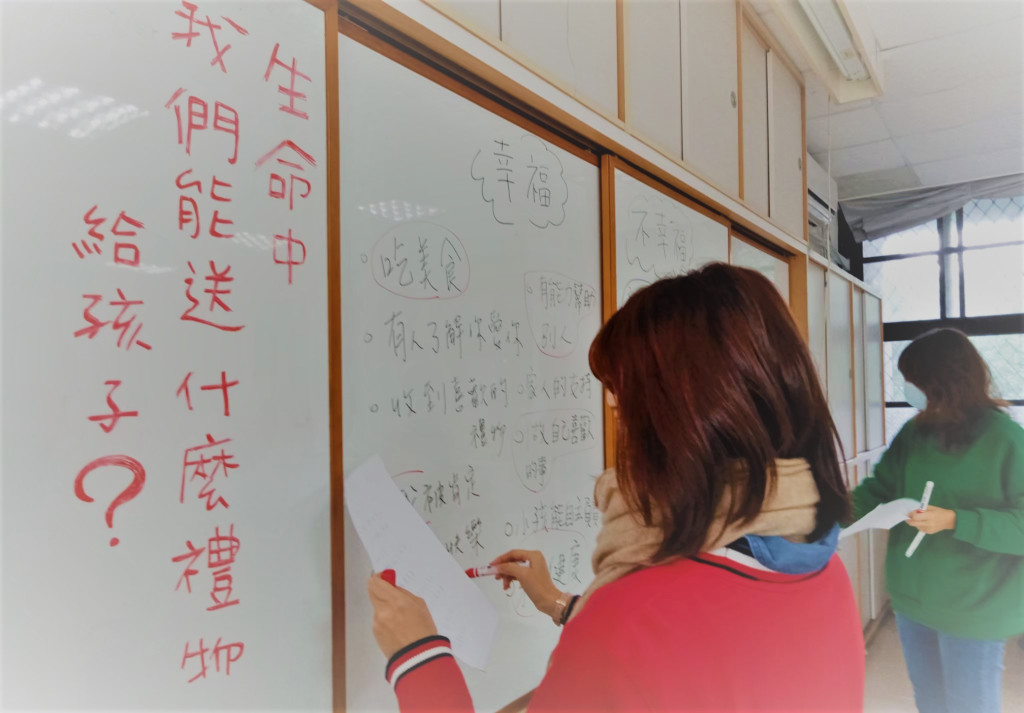 生命中
我們能送什麼禮物
給孩子？
幸福
吃美食
有人了解你愛你
收到喜歡的
禮物
被肯定
快樂
有能力幫助
別人
家人的支持
做自己喜歡
的事
小孩能自主
不幸福